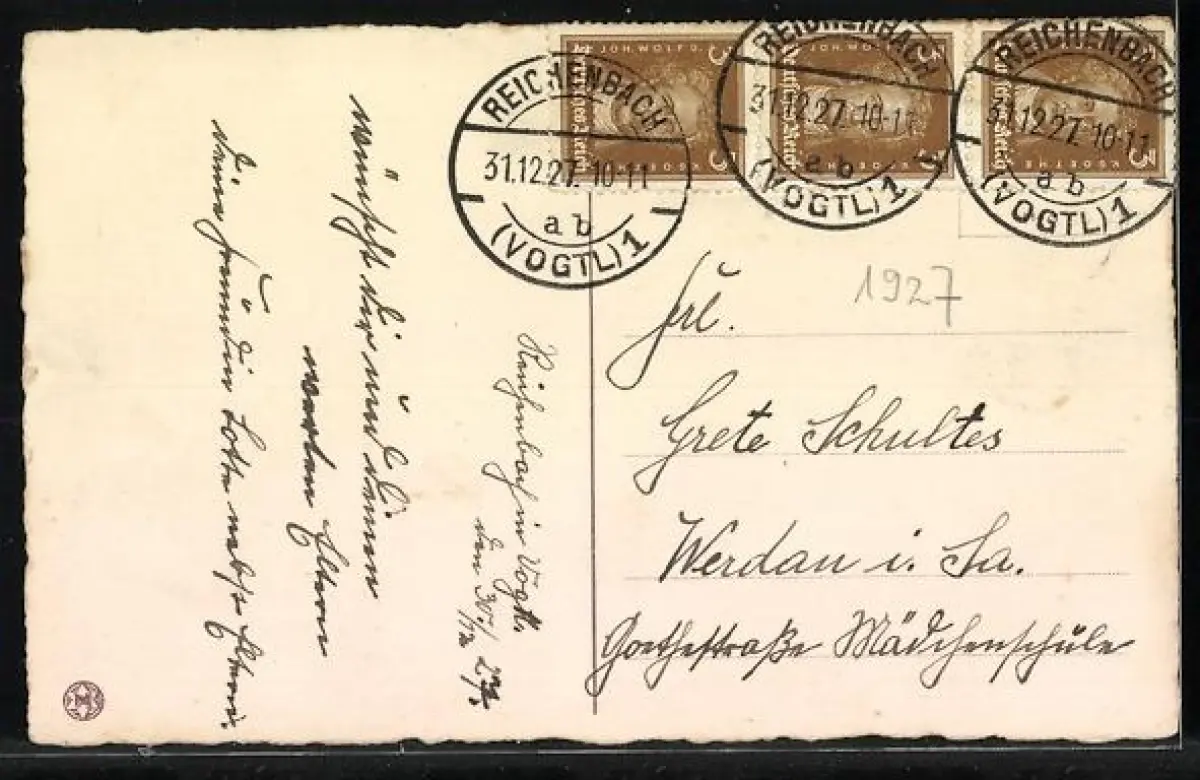 JOH. WOLFG.
3
3
Deutsches Reich
JOH. WOLFG.
Deutsches Reich
V. GOETHE
Deutsches Reich
V. GOETHE
3
REICHENBACH
31.12.27. 10-11
a b
(VOGTL) 1
REICHENBACH
31.12.27. 10-11
a b
(VOGTL) 1
REICHENBACH
31.12.27. 10-11
a b
(VOGTL) 1
1927
Frl.
Grete Schultes
Werdau i. Sa.
Goethestraße Mädchenschule
Reichenbach i. Vogtl.
den 30./12 27.
wünscht dir und deinen
werten Eltern
deine Freundin Lotte nebst Eltern.